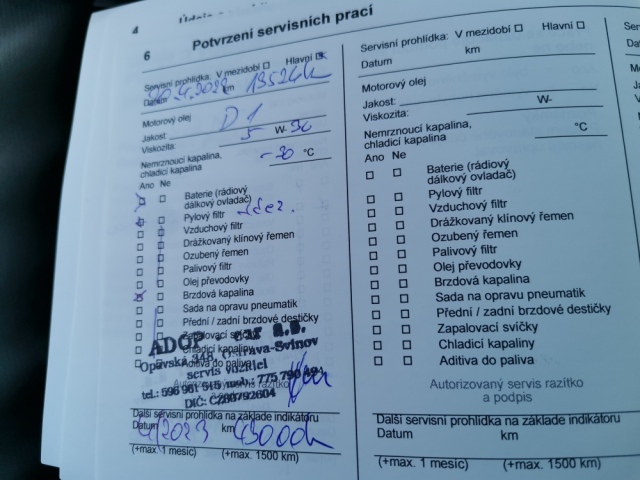 4
6
Potvrzení servisních prací
Servisní prohlídka: V mezidobí Hlavní
Datum km
Motorový olej
Jakost: D1
Viskozita: 5 W- 30
Nemrznoucí kapalina,
chladicí kapalina -30 °C
Ano Ne
Baterie (rádiový
dálkový ovladač)
Pylový filtr
Vzduchový filtr
Drážkovaný klínový řemen
Ozubený řemen
Palivový filtr
Olej převodovky
Brzdová kapalina
Sada na opravu pneumatik
Přední / zadní brzdové destičky
Zapalovací svíčky
Chladicí kapaliny
Aditiva do paliva
Opavská Ostrava-Svinov
servis vozidel
DIČ: CZ60792604
Další servisní prohlídka na základě indikátoru
Datum 4/2023 km
(+max. 1 měsíc) (+max. 1500 km)
Servisní prohlídka: V mezidobí Hlavní
Datum km
Motorový olej
Jakost:
Viskozita: W-
Nemrznoucí kapalina,
chladicí kapalina °C
Ano Ne
Baterie (rádiový
dálkový ovladač)
Pylový filtr
Vzduchový filtr
Drážkovaný klínový řemen
Ozubený řemen
Palivový filtr
Olej převodovky
Brzdová kapalina
Sada na opravu pneumatik
Přední / zadní brzdové destičky
Zapalovací svíčky
Chladicí kapaliny
Aditiva do paliva
Autorizovaný servis razítko
a podpis
Další servisní prohlídka na základě indikátoru
Datum km
(+max. 1 měsíc) (+max. 1500 km)